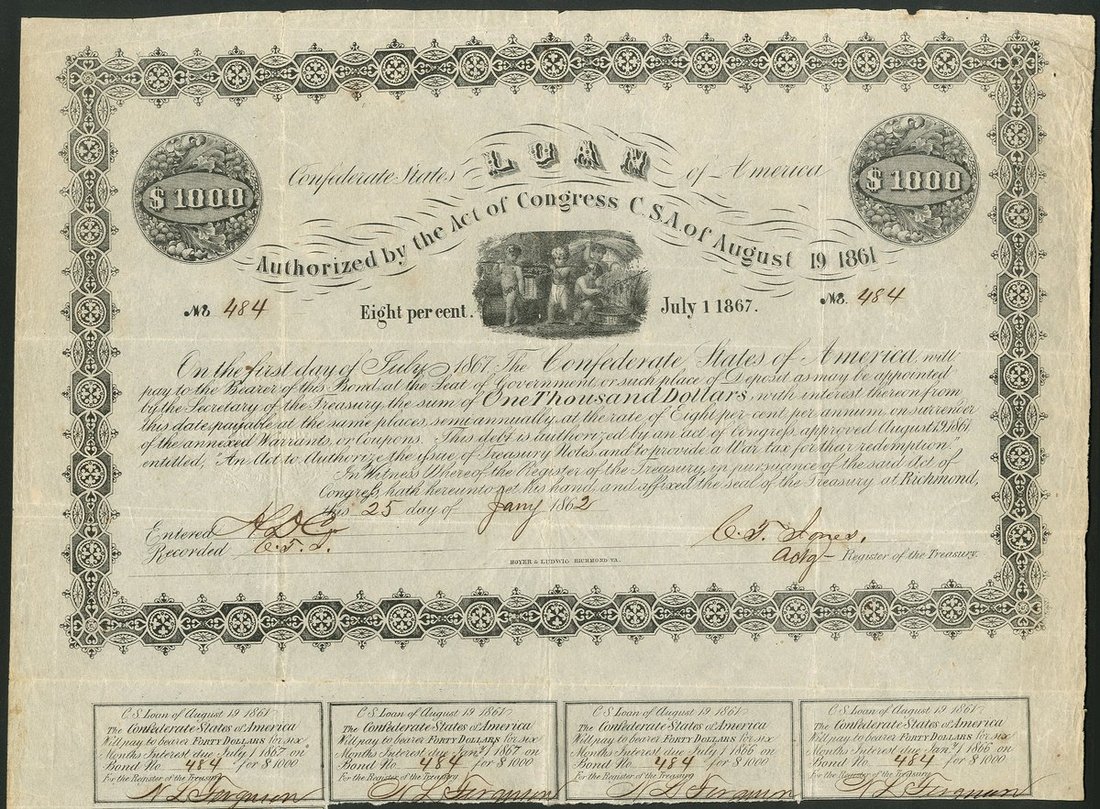 Confederate States LOAN of America
$ 1000
$ 1000
Authorized by the Act of Congress C.S.A. of August 19 1861
No. 484
Eight per cent.
July 1 1867.
No. 484
On the first day of July 1867. The Confederate States of America, will
pay to the Bearer of this Bond, at the Seat of Government, or such place of Deposit as may be appointed
by the Secretary of the Treasury, the sum of One Thousand Dollars, with interest thereon from
this date, payable at the same places, semi annually, at the rate of Eight per cent, per annum, on surrender
of the annexed Warrants, or Coupons. This debt is authorized by an act of Congress, approved August 19, 1861
entitled, "An Act to Authorize the issue of Treasury Notes, and to provide a War tax for their redemption."
In Witness Whereof the Register of the Treasury, in pursuance of the said Act of
Congress, hath hereunto set his hand, and affixed the seal of the Treasury at Richmond,
this 25 day of Jany 1862
Entered
Recorded C.T.J.
C. T. Jones,
Actg Register of the Treasury.
HOYER & LUDWIG RICHMOND VA.
C. S. Loan of August 19 1861
The Confederate States of America
Will pay to bearer FORTY DOLLARS for six
Months Interest due July 1 1867 on
Bond No. 484 for $ 1000
For the Register of the Treasury
N L Ferguson
C. S. Loan of August 19 1861
The Confederate States of America
Will pay to bearer FORTY DOLLARS for six
Months Interest due Jany 1 1867 on
Bond No. 484 for $ 1000
For the Register of the Treasury
N L Ferguson
C. S. Loan of August 19 1861
The Confederate States of America
Will pay to bearer FORTY DOLLARS for six
Months Interest due July 1 1866 on
Bond No. 484 for $ 1000
For the Register of the Treasury
N L Ferguson
C. S. Loan of August 19 1861
The Confederate States of America
Will pay to bearer FORTY DOLLARS for six
Months Interest due Jany 1 1866 on
Bond No. 484 for $ 1000
For the Register of the Treasury
N L Ferguson